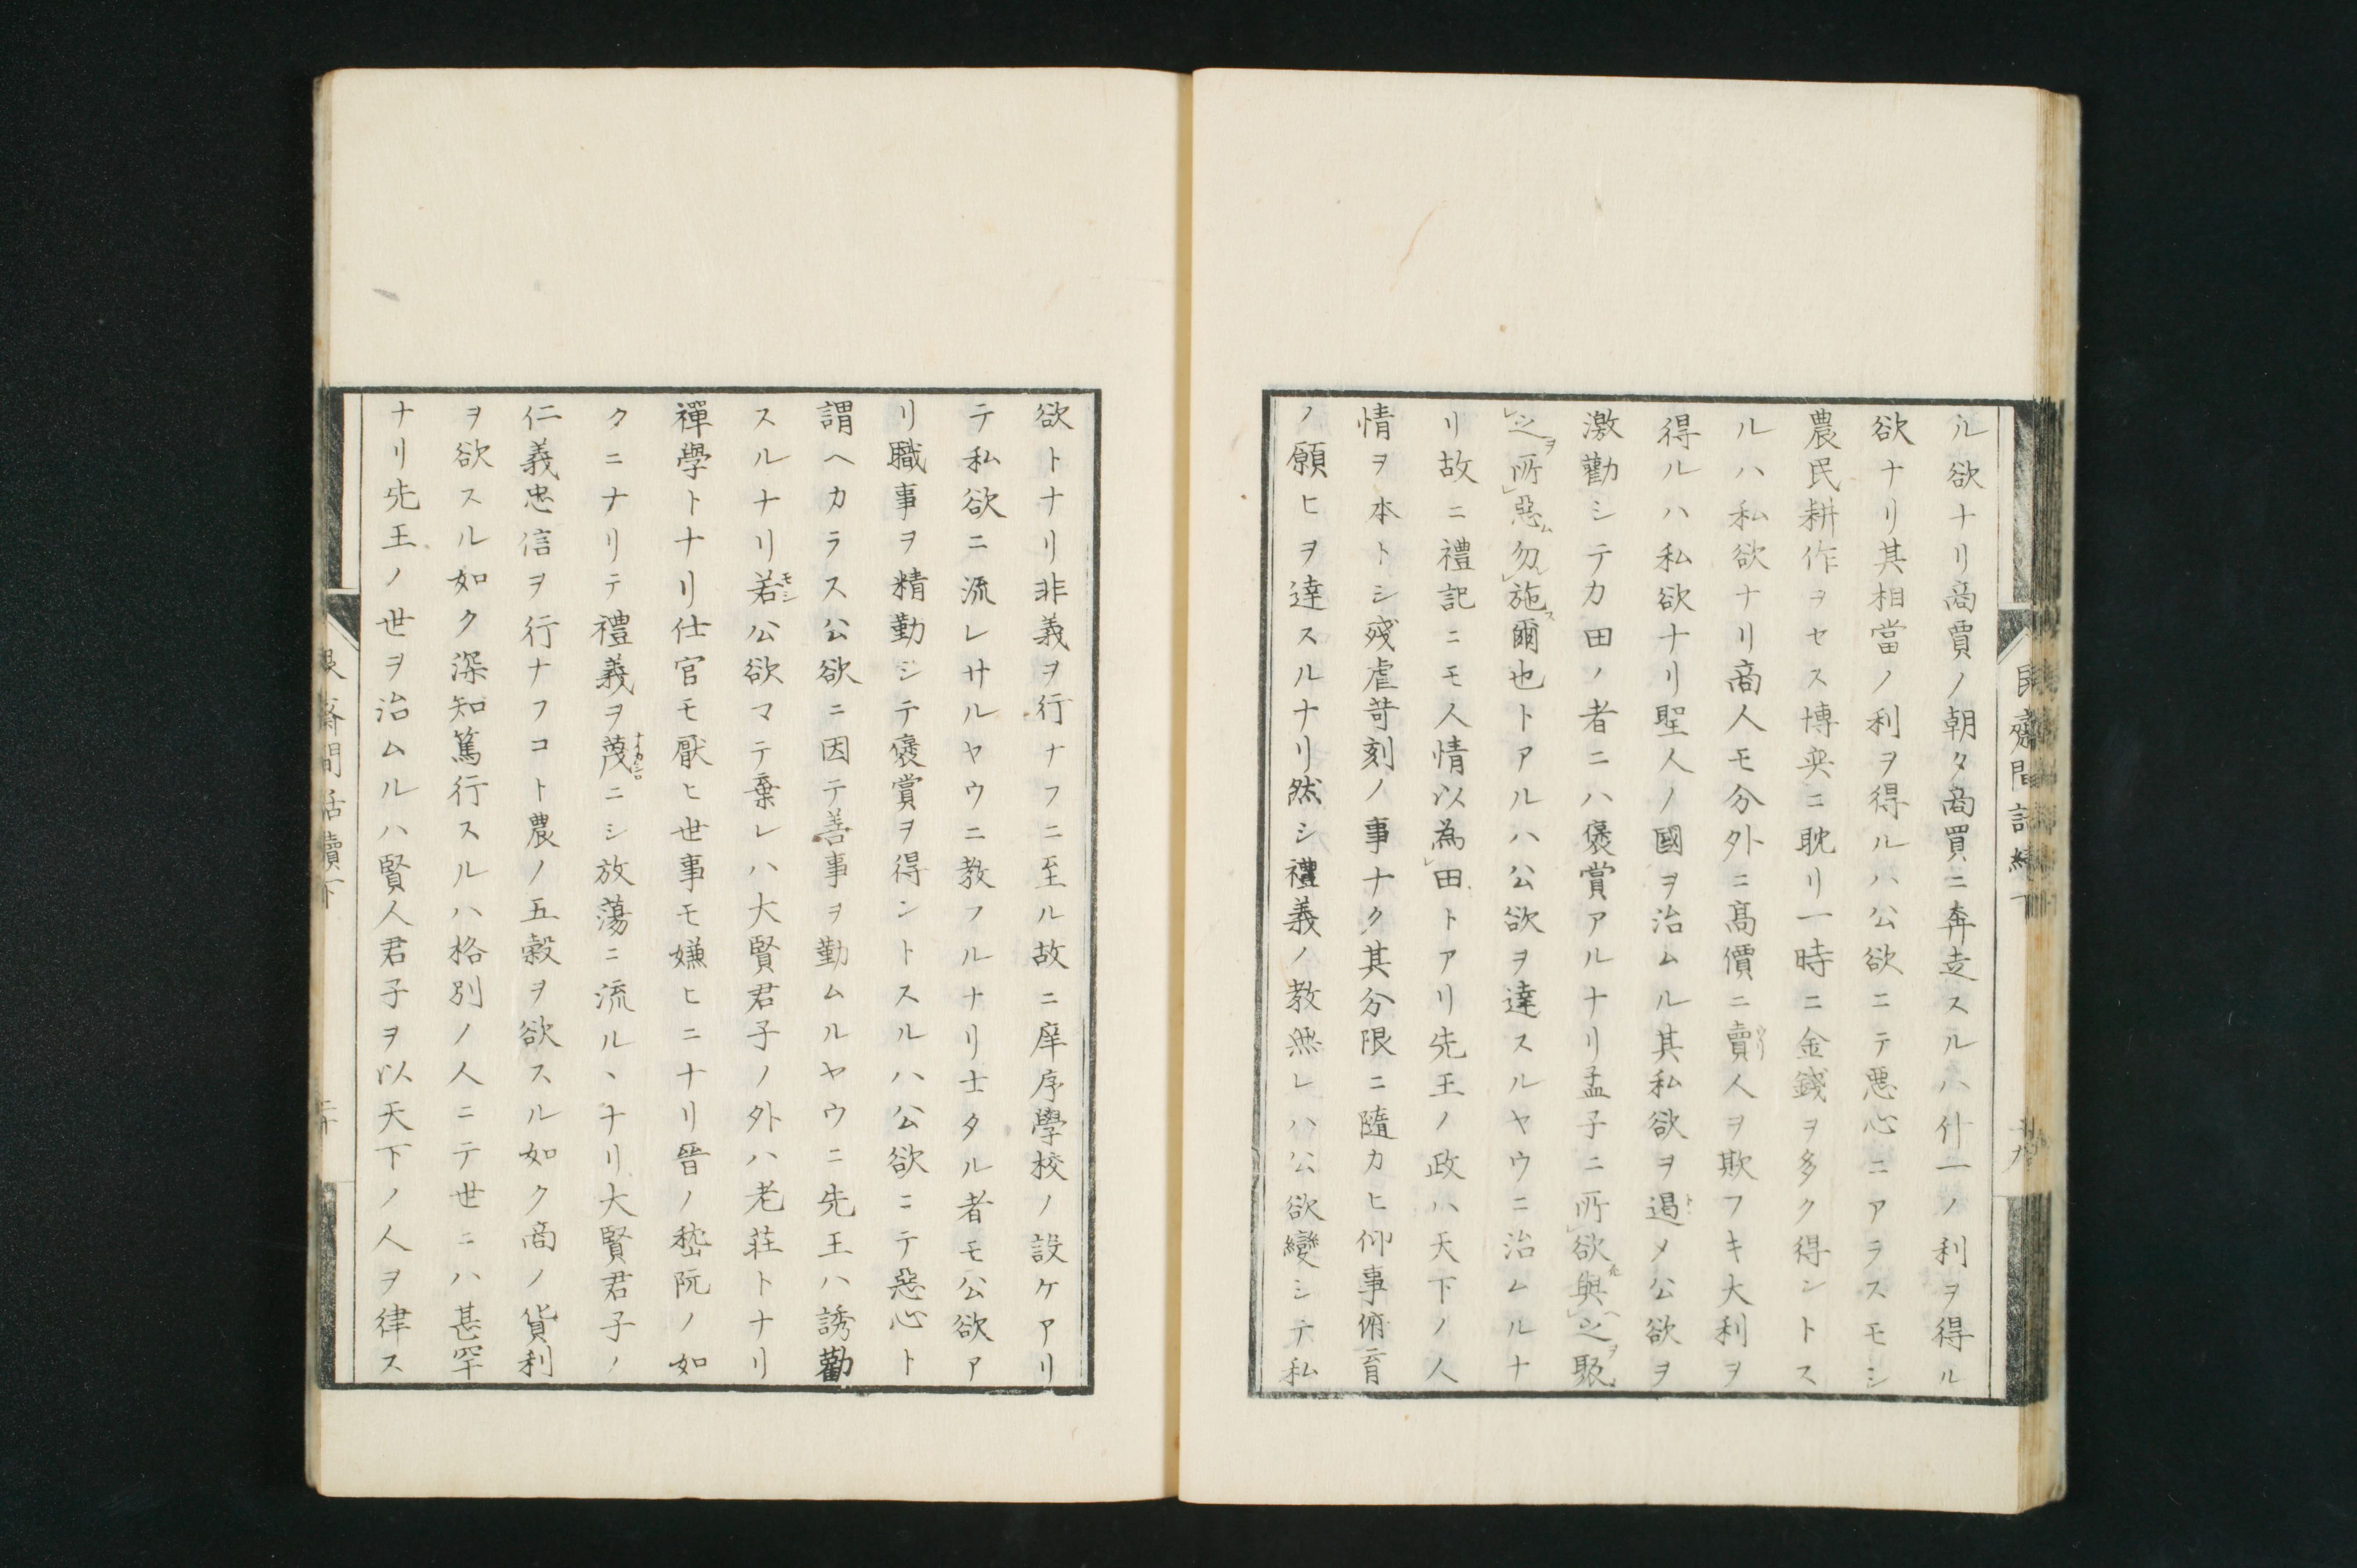 ル欲ナリ商賈ノ朝夕商買ニ奔走スルハ什一ノ利ヲ得ル
欲ナリ其相當ノ利ヲ得ルハ公欲ニテ悪心ニアラスモシ
農民耕作ヲセス博奕ニ耽リ一時ニ金錢ヲ多ク得ントス
ルハ私欲ナリ商人モ分外ニ高價ニ賣人ヲ欺フキ大利ヲ
得ルハ私欲ナリ聖人ノ國ヲ治ムル其私欲ヲ遏メ公欲ヲ
激勸シテカ田ノ者ニハ褒賞アルナリ孟子ニ所欲與之聚
之所惡勿施爾也トアルハ公欲ヲ達スルヤウニ治ムルナ
リ故ニ禮記ニモ人情以為田トアリ先王ノ政ハ天下ノ人
情ヲ本トシ殘虐苛刻ノ事ナク其分限ニ隨カヒ仰事俯育
ノ願ヒヲ達スルナリ然シ禮義ノ教無レハ公欲變シテ私
欲トナリ非義ヲ行ナフニ至ル故ニ庠序學校ノ設ケアリ
テ私欲ニ流レサルヤウニ教フルナリ士タル者モ公欲ア
リ職事ヲ精勤シテ褒賞ヲ得ントスルハ公欲ニテ惡心ト
謂ヘカラス公欲ニ因テ善事ヲ勤ムルヤウニ先王ハ誘勸
スルナリ若公欲マテ棄レハ大賢君子ノ外ハ老莊トナリ
禪學トナリ仕官モ厭ヒ世事モ嫌ヒニナリ晉ノ嵆阮ノ如
クニナリテ禮義ヲ蔑ニシ放蕩ニ流ルヽナリ大賢君子ノ
仁義忠信ヲ行ナフコト農ノ五穀ヲ欲スル如ク商ノ貨利
ヲ欲スル如ク深知篤行スルハ格別ノ人ニテ世ニハ甚罕
ナリ先王ノ世ヲ治ムルハ賢人君子ヲ以天下ノ人ヲ律ス